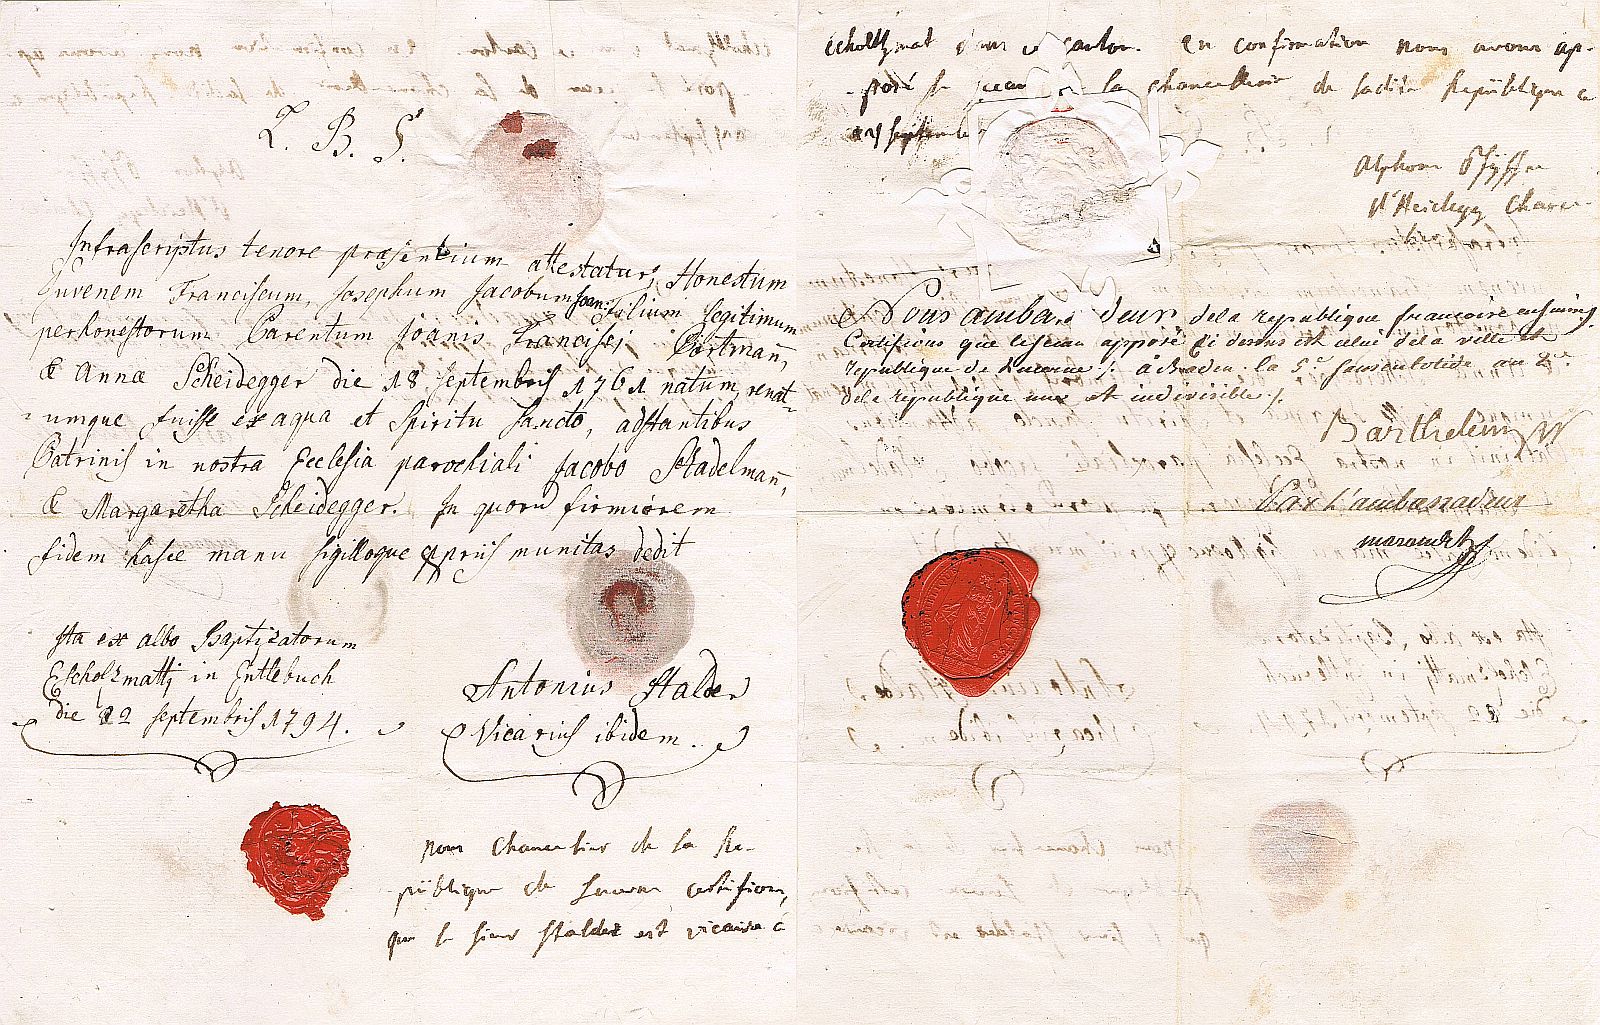 L. B. S.
Infrascriptus tenore præsentium attestatur, Honestum
Juvenem Franciscum, Josephum Jacobum Joan: Filium legitimum
perhonestorum Parentum Joanis Francisci Portmañ,
& Annæ Scheidegger die 18 Septembris 1761 natum, renat-
umque fuisse ex aqua et Spiritu Sancto, adstantibus
Patrinis in nostra Ecclesia parochiali Jacobo Stadelmañ,
& Margaretha Scheidegger. In quoru firmiorem
fidem hasce manu sigilloque ppriis munitas dedit
Ita ex albo Baptizatorum
Escholzmattj in Entlebuch
die 22 Septembris 1794.
Antonius Stalder
Vicarius ibidem.
nous Chancelier de la Re-
püblique de Lucerne certifions,
que le sieur Stalder est vicaire à
Escholtzmat dans ce canton. en confirmation nous avons ap-
posé le sceau de la chancellerie de ladite Repüblique ce
septembre
Alphons Pfyffer
d'Heidegg Chance-
lier
Nous ambassadeur de la republique francoise en suisse,
Certifions que le sceau apposé ci dessus est celui de la ville et
republique de Lucerne /. à Baden la 5.e sansculotide an 2.e
de la république une et indivisible /.
Barthelemy
Par L'ambassadeur